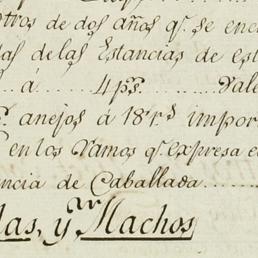 otros de dos años q.e se enc
das de las Estancias de est
..... á ..... 4 ps. ..... Vale
anejos á 18 r.s impor
en los Ramos q.e expresa e
encia de Caballada .....
las, y Machos